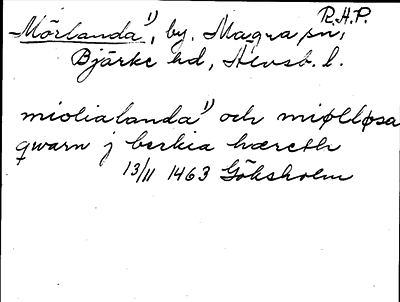 R.H.P.
Mörlanda¹⁾, by, Magra sn,
Bjärke hd, Älvsb. l.
miolialanda¹⁾ och miølløsa
qwarn j berkia hæreth
13/11 1463 Göksholm